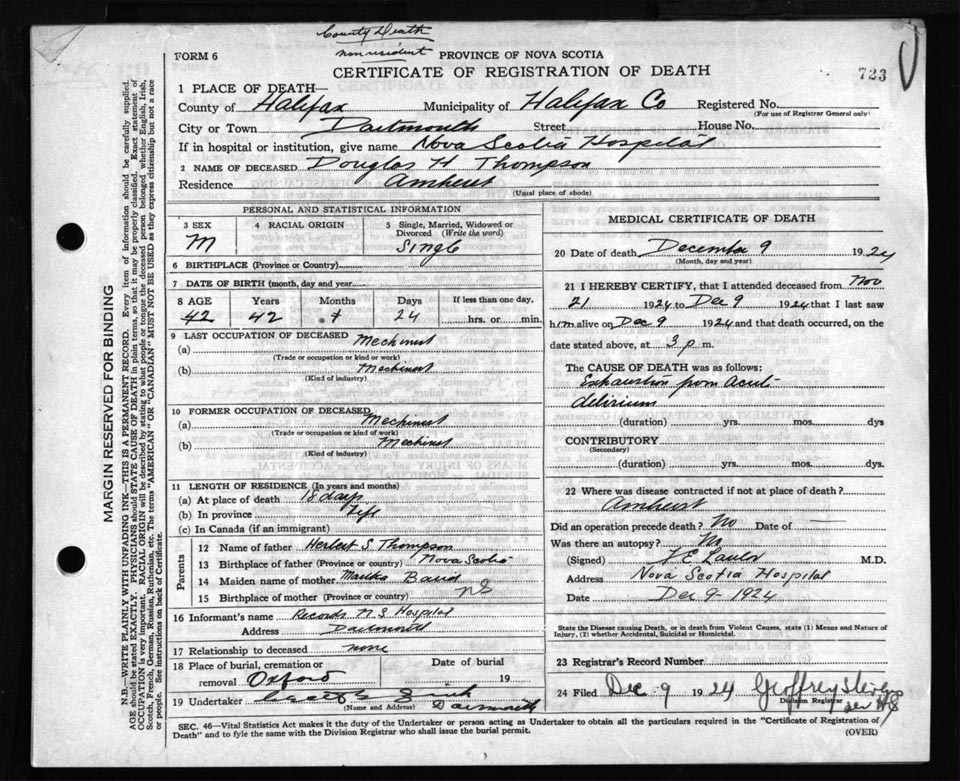 County Death
non resident
FORM 6
PROVINCE OF NOVA SCOTIA
CERTIFICATE OF REGISTRATION OF DEATH
723
1 PLACE OF DEATH—
County of Halifax Municipality of Halifax Co Registered No.
(For use of Registrar General only)
City or Town Dartmouth Street House No.
If in hospital or institution, give name Nova Scotia Hospital
2 NAME OF DECEASED Douglas H Thompson
Residence Amherst
(Usual place of abode)
MARGIN RESERVED FOR BINDING
N.B.—WRITE PLAINLY WITH UNFADING INK—THIS IS A PERMANENT RECORD. Every item of information should be carefully supplied.
AGE should be stated EXACTLY. PHYSICIANS should STATE CAUSE OF DEATH in plain terms, so that it may be properly classified. Exact statement of
OCCUPATION is very important. RACIAL ORIGIN will be described by stating to what people or tongue the deceased person belonged whether English, Irish,
Scotch, French, German, Russian, Ruthenian, etc. The terms "AMERICAN" OR "CANADIAN" MUST NOT BE USED as they express citizenship but not a race
or people. See instructions on back of Certificate.
PERSONAL AND STATISTICAL INFORMATION
3 SEX
M
4 RACIAL ORIGIN
5 Single, Married, Widowed or
Divorced (Write the word)
Single
6 BIRTHPLACE (Province or Country)
7 DATE OF BIRTH (month, day and year)
8 AGE Years Months Days If less than one day,
42 42 7 24 hrs. or min.
9 LAST OCCUPATION OF DECEASED
(a) Mechinist
(Trade or occupation or kind or work)
(b) Mechinist
(Kind of industry)
10 FORMER OCCUPATION OF DECEASED
(a) Mechinist
(Trade or occupation or kind of work)
(b) Mechinist
(Kind of industry)
11 LENGTH OF RESIDENCE (In years and months)
(a) At place of death 18 days
(b) In province Life
(c) In Canada (if an immigrant)
Parents
12 Name of father Herbert S Thompson
13 Birthplace of father (Province or country) Nova Scotia
14 Maiden name of mother
15 Birthplace of mother (Province or country) NS
16 Informant's name Records N.S Hospital
Address Dartmouth
17 Relationship to deceased none
18 Place of burial, cremation or
removal Oxford
Date of burial
19
19 Undertaker
(Name and Address) Dartmouth
MEDICAL CERTIFICATE OF DEATH
20 Date of death December 9 1924
(Month, day and year)
21 I HEREBY CERTIFY, that I attended deceased from Nov
21 1924 to Dec 9 1924 that I last saw
him alive on Dec 9 1924 and that death occurred, on the
date stated above, at 3 p m.
The CAUSE OF DEATH was as follows:
Exhaustion from Acute
delirium
(duration) yrs. mos. dys
CONTRIBUTORY
(Secondary)
(duration) yrs. mos. dys.
22 Where was disease contracted if not at place of death?
Amherst
Did an operation precede death? No Date of —
Was there an autopsy? No
(Signed) M.D.
Address Nova Scotia Hospital
Date Dec 9 - 1924
State the Disease causing Death, or in death from Violent Causes, state (1) Means and Nature of
Injury, (2) whether Accidental, Suicidal or Homicidal.
23 Registrar's Record Number
24 Filed Dec 9 1924 Geoffrey
Division Registrar
SEC. 46—Vital Statistics Act makes it the duty of the Undertaker or person acting as Undertaker to obtain all the particulars required in the "Certificate of Registration of
Death" and to fyle the same with the Division Registrar who shall issue the burial permit.
(OVER)